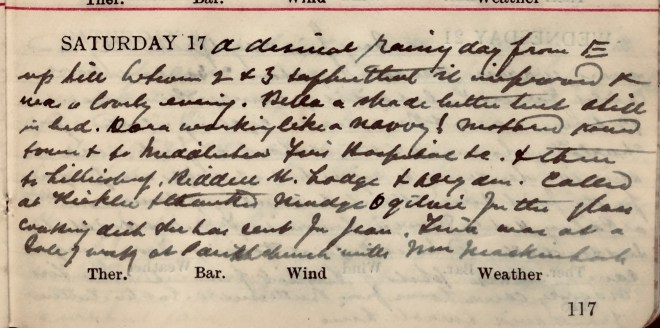 Ther. Bar. Wind Weather
SATURDAY 17 a dismal rainy day from E
up till between 2 & 3 after that it improved &
was a lovely evening. Bella a shade better but still
in bed. Dora working like a navvy! Motored round
town & to Hospital &c. & then
to Riddell Lodge & Called
at & thanked Madge Ogilvie for the glass
cooking dish she has sent for Jean. was at a
at Parish church with Mrs
Ther. Bar. Wind Weather
117